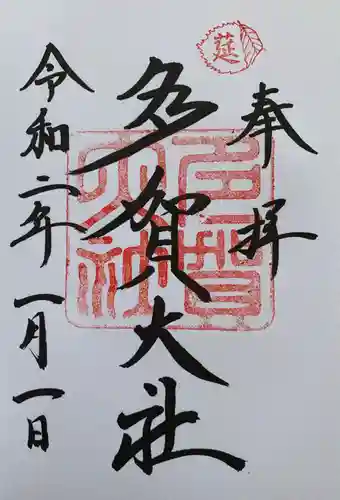 奉拝
多賀大社
令和二年一月一日
莚
多賀大社